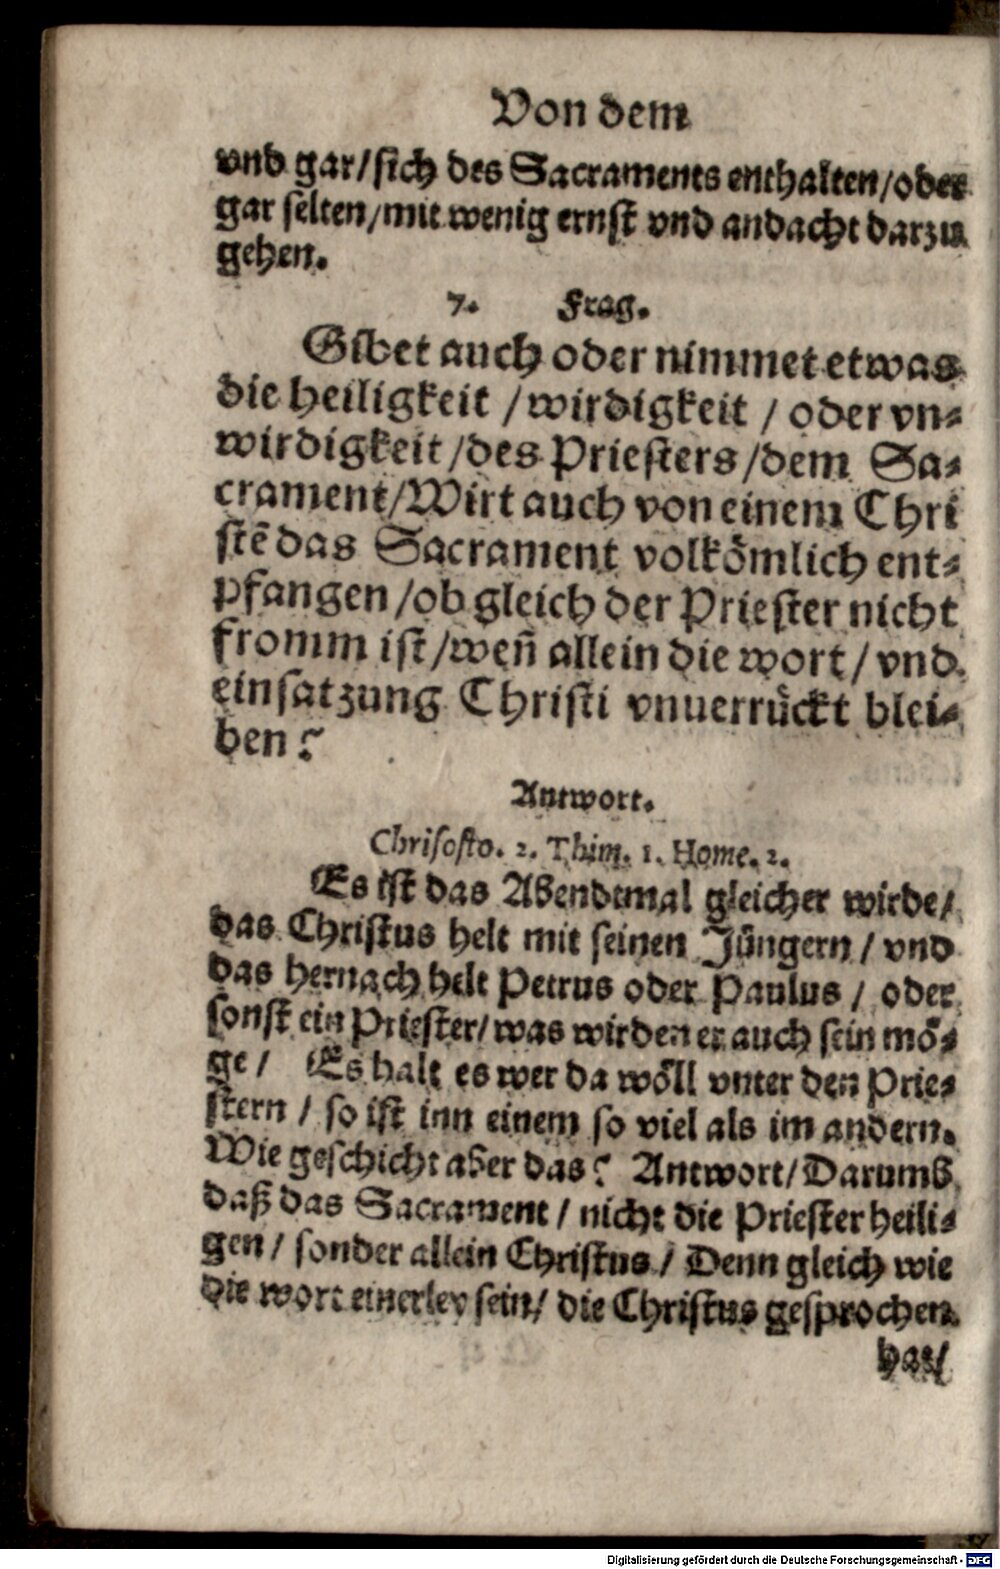 Von dem
vnd gar/sich des Sacraments enthalten/oder
gar selten/mit wenig ernst vnd andacht darzu
gehen.
7. Frag.
Gibet auch oder nimmet etwas
die heiligkeit /wirdigkeit / oder vn⸗
wirdigkeit /des Priesters /dem Sa⸗
crament/Wirt auch von einem Chri
stē das Sacrament volkömlich ent⸗
pfangen /ob gleich der Priester nicht
fromm ist /weñ allein die wort / vnd
einsatzung Christi vnuerrückt blei⸗
ben?
Antwort.
Chrisosto. 2. Thim. 1. Home. 2.
Es ist das Abendmal gleicher wirde/
das Christus helt mit seinen Jüngern / vnd
das hernach helt Petrus oder Paulus / oder
sonst ein Priester/ was wirden er auch sein mö⸗
ge / Es halt es wer da wöll vnter den Prie⸗
stern / so ist inn einem so viel als im andern.
Wie geschicht aber das? Antwort/Darumb
daß das Sacrament / nicht die Priester heili⸗
gen / sonder allein Christus / Denn gleich wie
die wort einerley sein/ die Christus gesprochen
hat/
Digitalisierung gefördert durch die Deutsche Forschungsgemeinschaft - DFG